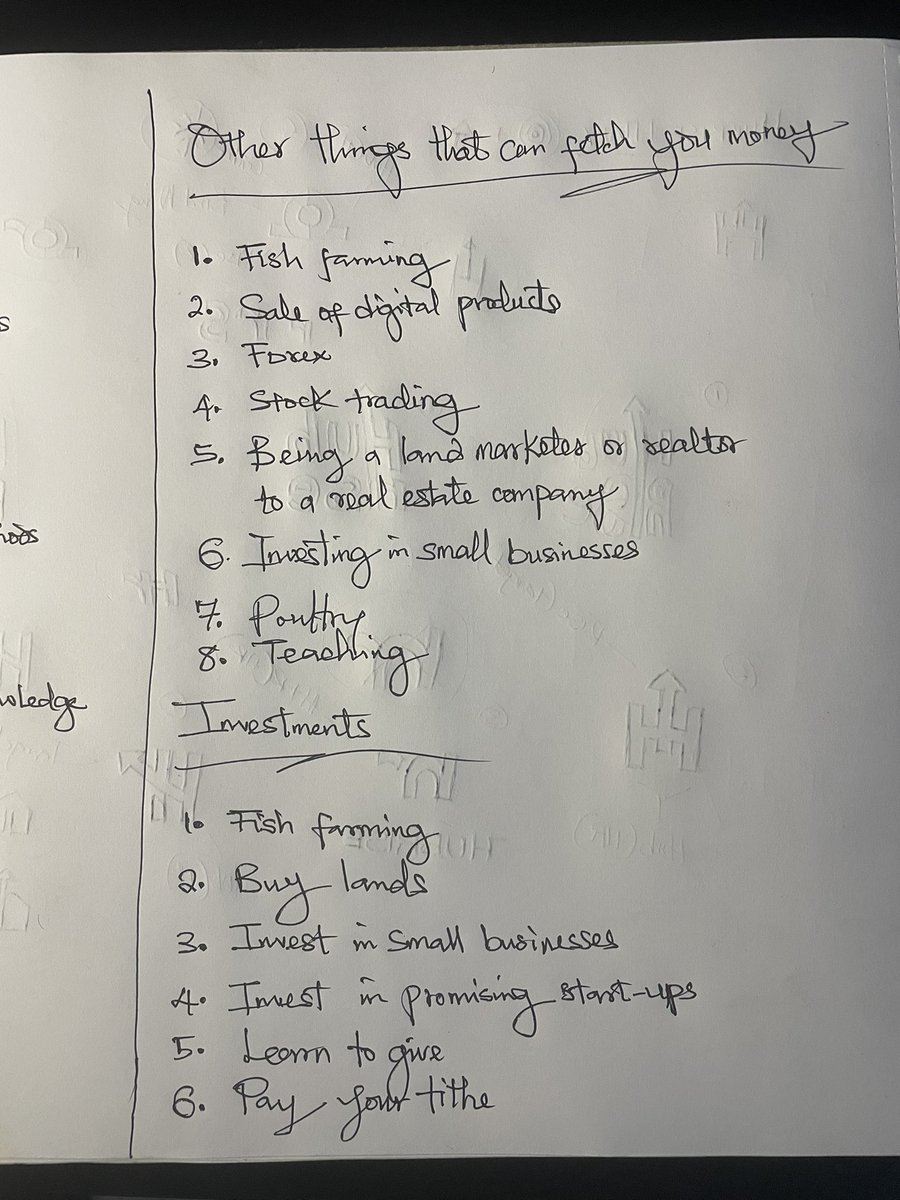 Other things that can fetch you money
1. Fish farming
2. Sale of digital products
3. Forex
4. Stock trading
5. Being a land marketer or realtor
to a real estate company
6. Investing in small businesses
7. Poultry
8. Teaching
Investments
1. Fish farming
2. Buy lands
3. Invest in small businesses
4. Invest in promising start-ups
5. Learn to give
6. Pay your tithe